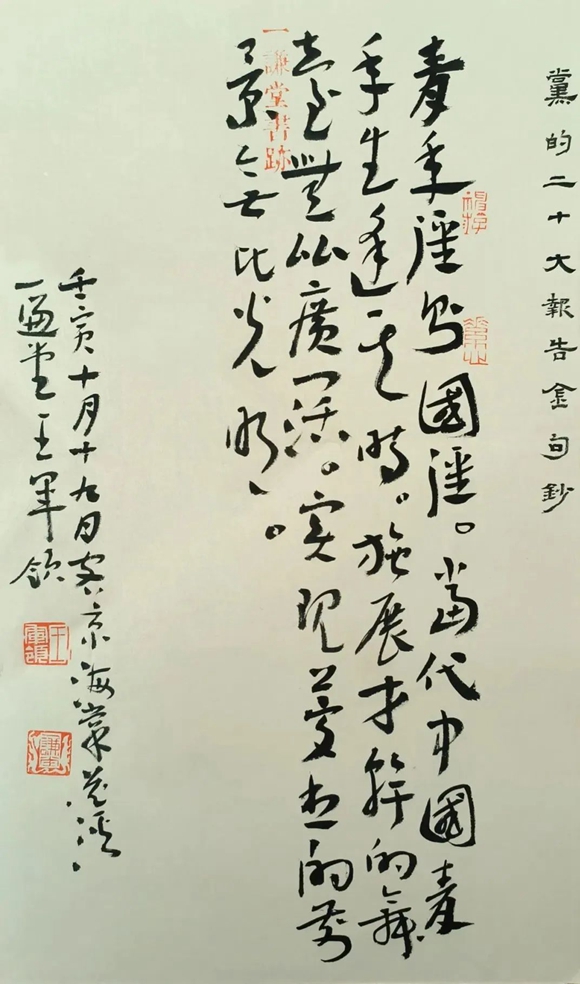 黨的二十大報告金句鈔
青年强则國强。當代中國青
年生逢其時。施展才幹的舞
臺無比廣闊。实现夢想的前
景无比光明。
一謙堂書跡
壬寅十月十九日客京海棠花溪
一謙堂王軍領
王軍領